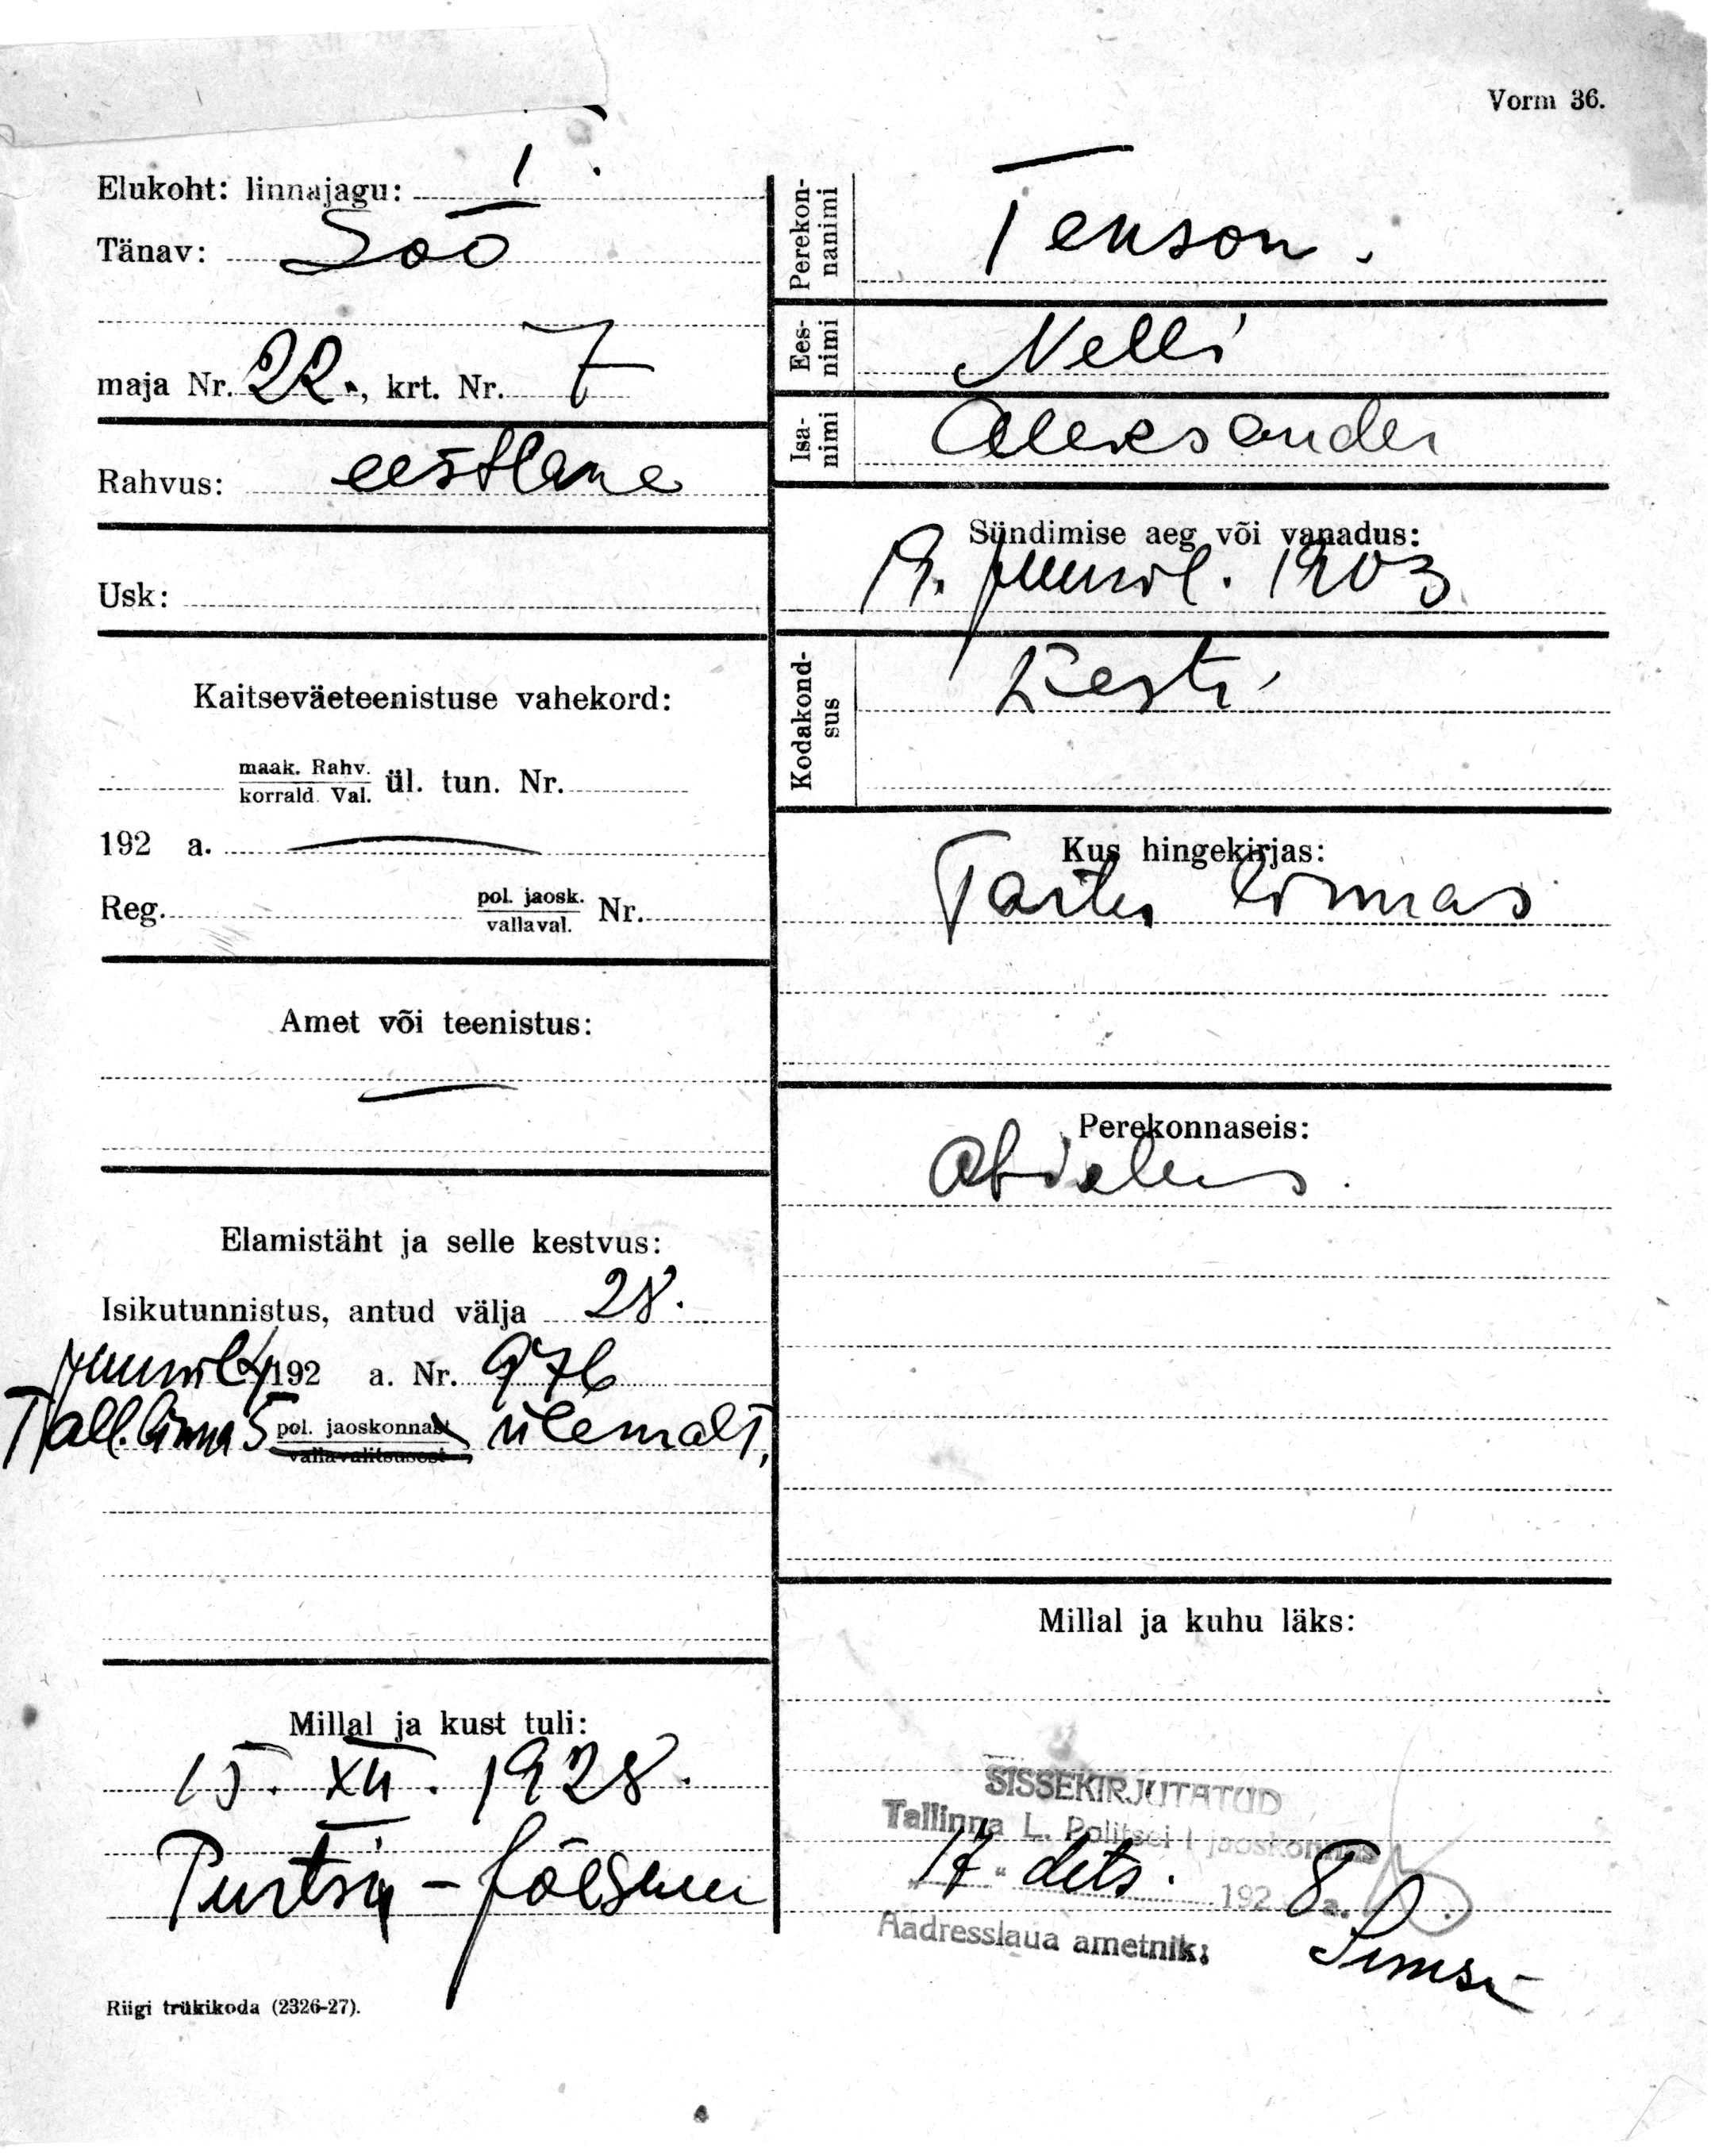 Vorm 36.
Elukoht: linnajagu: I.
Tänav: Soo
maja Nr. 22., krt. Nr. 7
Rahvus: eestlane
Usk:
Kaitseväeteenistuse vahekord:
maak. Rahv.
korrald. Val. ül. tun. Nr.
192 a. —
Reg. pol. jaosk.
vallaval. Nr.
Amet või teenistus:
—
Elamistäht ja selle kestvus:
Isikutunnistus, antud välja 28.
juunil 192 a. Nr. 976
Tall. linna 5 pol. jaoskonnast ülemalt,
vallavalitsusest
Millal ja kust tuli:
15. XII. 1928.
Purtsi-Jõesuu
Riigi trükikoda (2326-27).
Perekonnanimi
Tenson.
Eesnimi
Nelli
Isanimi
Aleksander
Sündimise aeg või vanadus:
19. juunil. 1903
Kodakondsus
Eesti
Kus hingekirjas:
Tartu linnas
Perekonnaseis:
Abielus.
Millal ja kuhu läks:
SISSEKIRJUTATUD
Tallinna L. Politsei I jaoskonnas
"17" dets. 1928 a.
Aadresslaua ametnik: